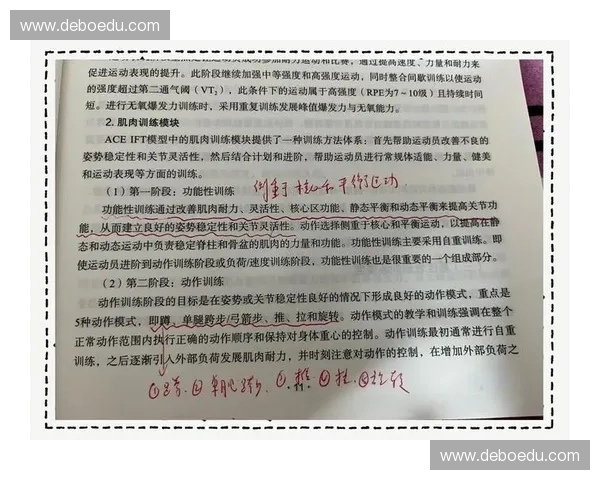 www.deboedu.com
促进运动表现的提升。此阶段继续加强中等强度和高强度运动，同时整合间歇训练以使运动
的强度超过第二通气阈（VT2），此条件下的运动属于高强度（RPE为7～10级）且持续时间
短。进行无氧爆发力训练时，采用重复训练发展峰值爆发力与无氧能力。
2. 肌肉训练模块
ACE IFT模型中的肌肉训练模块提供了一种训练方法体系：首先帮助运动员改善不良的
姿势稳定性和关节灵活性，然后结合计划和进阶，帮助运动员进行常规体适能、力量、健美
和运动表现等方面的训练。
（1）第一阶段：功能性训练
侧重于核心和平衡运动
功能性训练通过改善肌肉耐力、灵活性、核心区功能、静态平衡和动态平衡来提高关节功
能，从而建立良好的姿势稳定性和关节灵活性。动作选择侧重于核心和平衡运动，以提高在静
态和动态运动中负责稳定脊柱和骨盆的肌肉的力量和功能。功能性训练主要采用自重训练。即
使运动员进阶到动作训练阶段或负荷/速度训练阶段，功能性训练也是很重要的一个组成部分。
（2）第二阶段：动作训练
动作训练阶段的目标是在姿势或关节稳定性良好的情况下形成良好的动作模式，重点是
5种动作模式，即蹲、单腿跨步/弓箭步、推、拉和旋转。动作模式的教学和训练强调在整个
正常动作范围内执行正确的动作顺序和保持对身体重心的控制。动作训练最初通常进行自重
训练，之后逐渐引入外部负荷发展肌肉耐力，并时刻注意对动作的控制，在增加外部负荷之
①蹲 ②单腿跨步 ③推 ④拉 ⑤旋转
www.deboedu.com